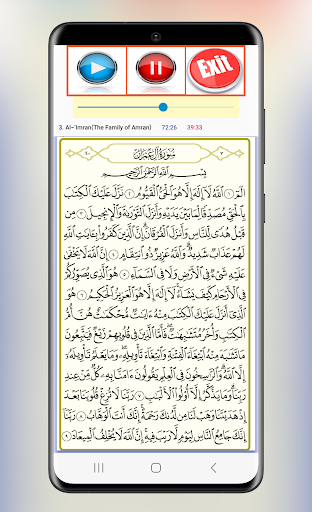 Exit
3. Al-'Imran(The Family of Amran) 72:26 39:33
سُورَةُ آلِ عِمْرَانَ
بِسْمِ ٱللَّهِ ٱلرَّحْمَٰنِ ٱلرَّحِيمِ
الٓمٓ ١ ٱللَّهُ لَآ إِلَٰهَ إِلَّا هُوَ ٱلْحَىُّ ٱلْقَيُّومُ ٢ نَزَّلَ عَلَيْكَ ٱلْكِتَٰبَ
بِٱلْحَقِّ مُصَدِّقًا لِّمَا بَيْنَ يَدَيْهِ وَأَنزَلَ ٱلتَّوْرَىٰةَ وَٱلْإِنجِيلَ ٣ مِن
قَبْلُ هُدًى لِّلنَّاسِ وَأَنزَلَ ٱلْفُرْقَانَ إِنَّ ٱلَّذِينَ كَفَرُوا۟ بِـَٔايَٰتِ ٱللَّهِ
لَهُمْ عَذَابٌ شَدِيدٌ وَٱللَّهُ عَزِيزٌ ذُو ٱنتِقَامٍ ٤ إِنَّ ٱللَّهَ لَا يَخْفَىٰ
عَلَيْهِ شَىْءٌ فِى ٱلْأَرْضِ وَلَا فِى ٱلسَّمَآءِ ٥ هُوَ ٱلَّذِى يُصَوِّرُكُمْ
فِى ٱلْأَرْحَامِ كَيْفَ يَشَآءُ لَآ إِلَٰهَ إِلَّا هُوَ ٱلْعَزِيزُ ٱلْحَكِيمُ ٦ هُوَ
ٱلَّذِىٓ أَنزَلَ عَلَيْكَ ٱلْكِتَٰبَ مِنْهُ ءَايَٰتٌ مُّحْكَمَٰتٌ هُنَّ أُمُّ
ٱلْكِتَٰبِ وَأُخَرُ مُتَشَٰبِهَٰتٌ فَأَمَّا ٱلَّذِينَ فِى قُلُوبِهِمْ زَيْغٌ فَيَتَّبِعُونَ
مَا تَشَٰبَهَ مِنْهُ ٱبْتِغَآءَ ٱلْفِتْنَةِ وَٱبْتِغَآءَ تَأْوِيلِهِۦ وَمَا يَعْلَمُ تَأْوِيلَهُۥٓ
إِلَّا ٱللَّهُ وَٱلرَّٰسِخُونَ فِى ٱلْعِلْمِ يَقُولُونَ ءَامَنَّا بِهِۦ كُلٌّ مِّنْ عِندِ
رَبِّنَا وَمَا يَذَّكَّرُ إِلَّآ أُو۟لُوا۟ ٱلْأَلْبَٰبِ ٧ رَبَّنَا لَا تُزِغْ قُلُوبَنَا بَعْدَ
إِذْ هَدَيْتَنَا وَهَبْ لَنَا مِن لَّدُنكَ رَحْمَةً إِنَّكَ أَنتَ ٱلْوَهَّابُ ٨ رَبَّنَآ
إِنَّكَ جَامِعُ ٱلنَّاسِ لِيَوْمٍ لَّا رَيْبَ فِيهِ إِنَّ ٱللَّهَ لَا يُخْلِفُ ٱلْمِيعَادَ ٩